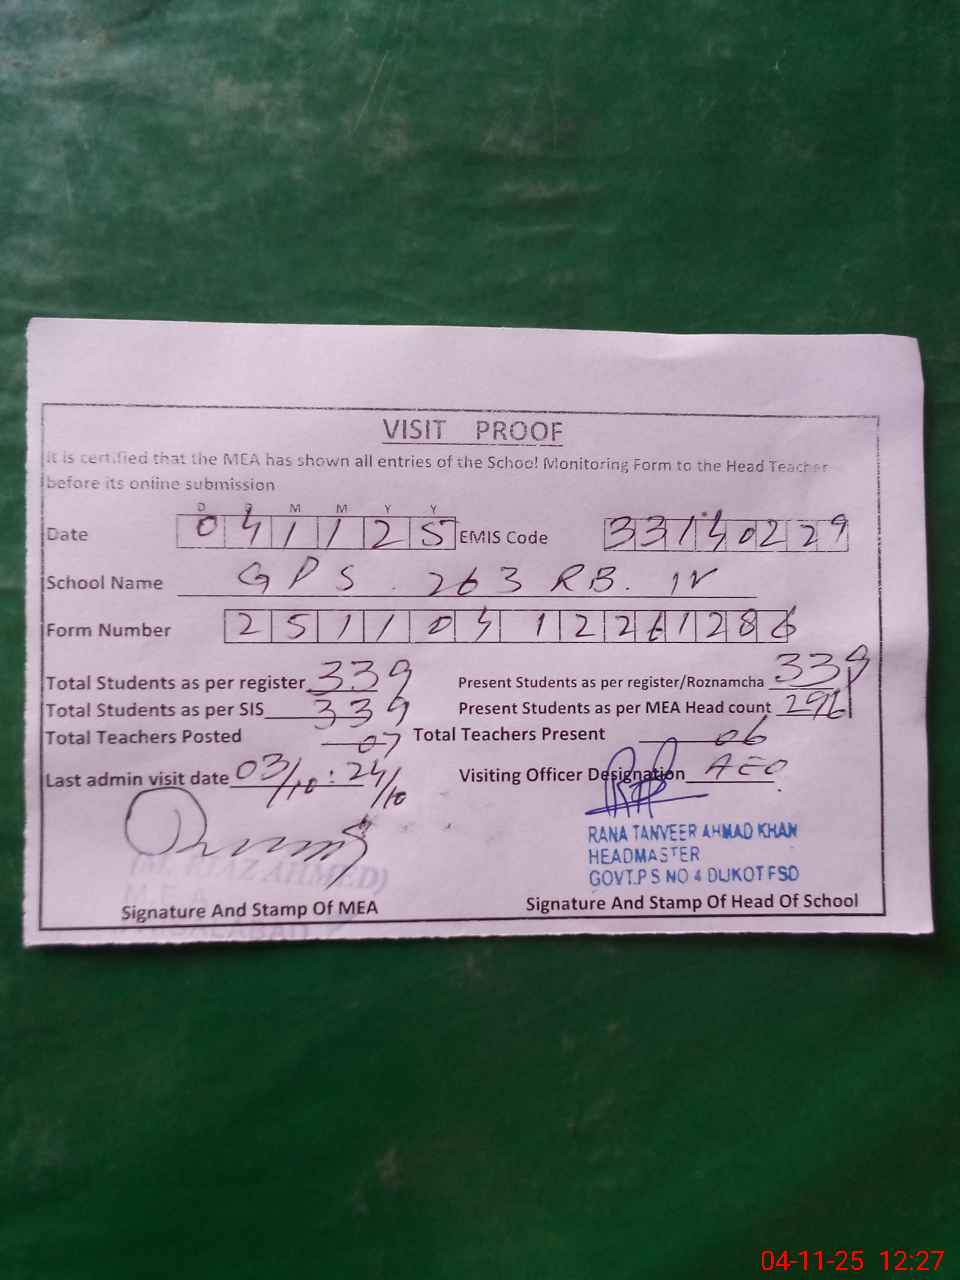 VISIT PROOF
It is certified that the MEA has shown all entries of the School Monitoring Form to the Head Teacher
before its online submission
D D M M Y Y
Date 0 4 1 1 2 5 EMIS Code 3 3 1 4 0 2 2 9
School Name GPS. 263 RB. IV
Form Number 2 5 1 1 0 4 1 2 2 6 1 2 8 6
Total Students as per register 339 Present Students as per register/Roznamcha 339
Total Students as per SIS 339 Present Students as per MEA Head count 296
Total Teachers Posted 07 Total Teachers Present 06
Last admin visit date 03/10 : 24/10 Visiting Officer Designation AEO
RANA TANVEER AHMAD KHAN
HEADMASTER
GOVT.P S NO 4 DIJKOT FSD
AHMED)
M.E.A
Signature And Stamp Of MEA Signature And Stamp Of Head Of School
04-11-25 12:27